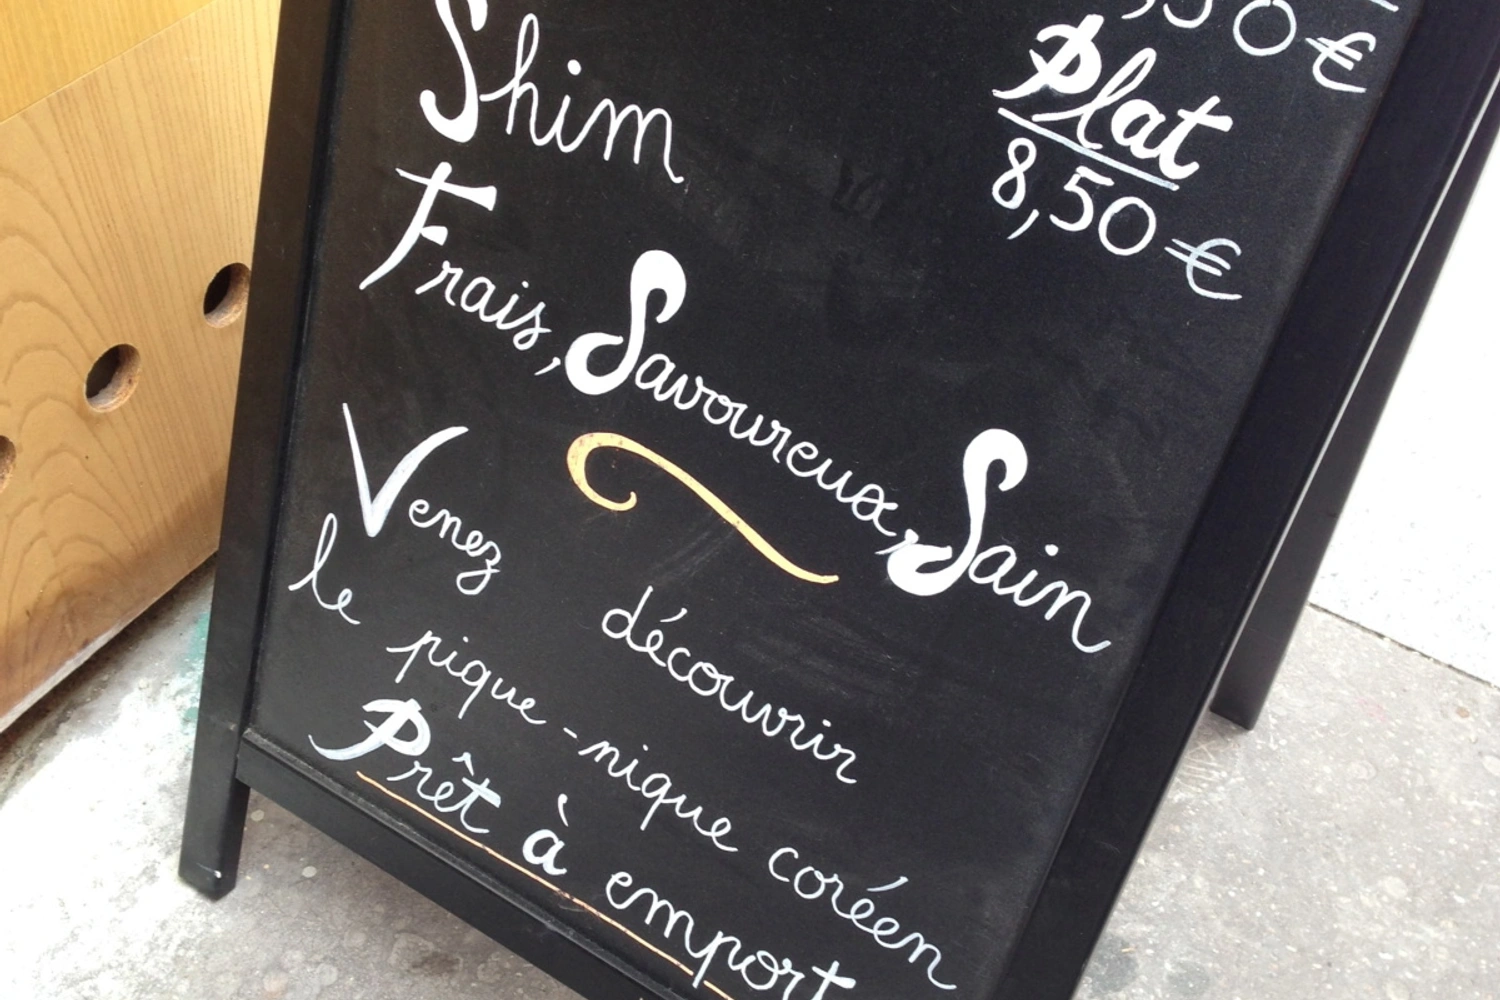 Shim
,50€
Plat
8,50€
Frais, Savoureux, Sain
Venez découvrir
le pique-nique coréen
Prêt à emport